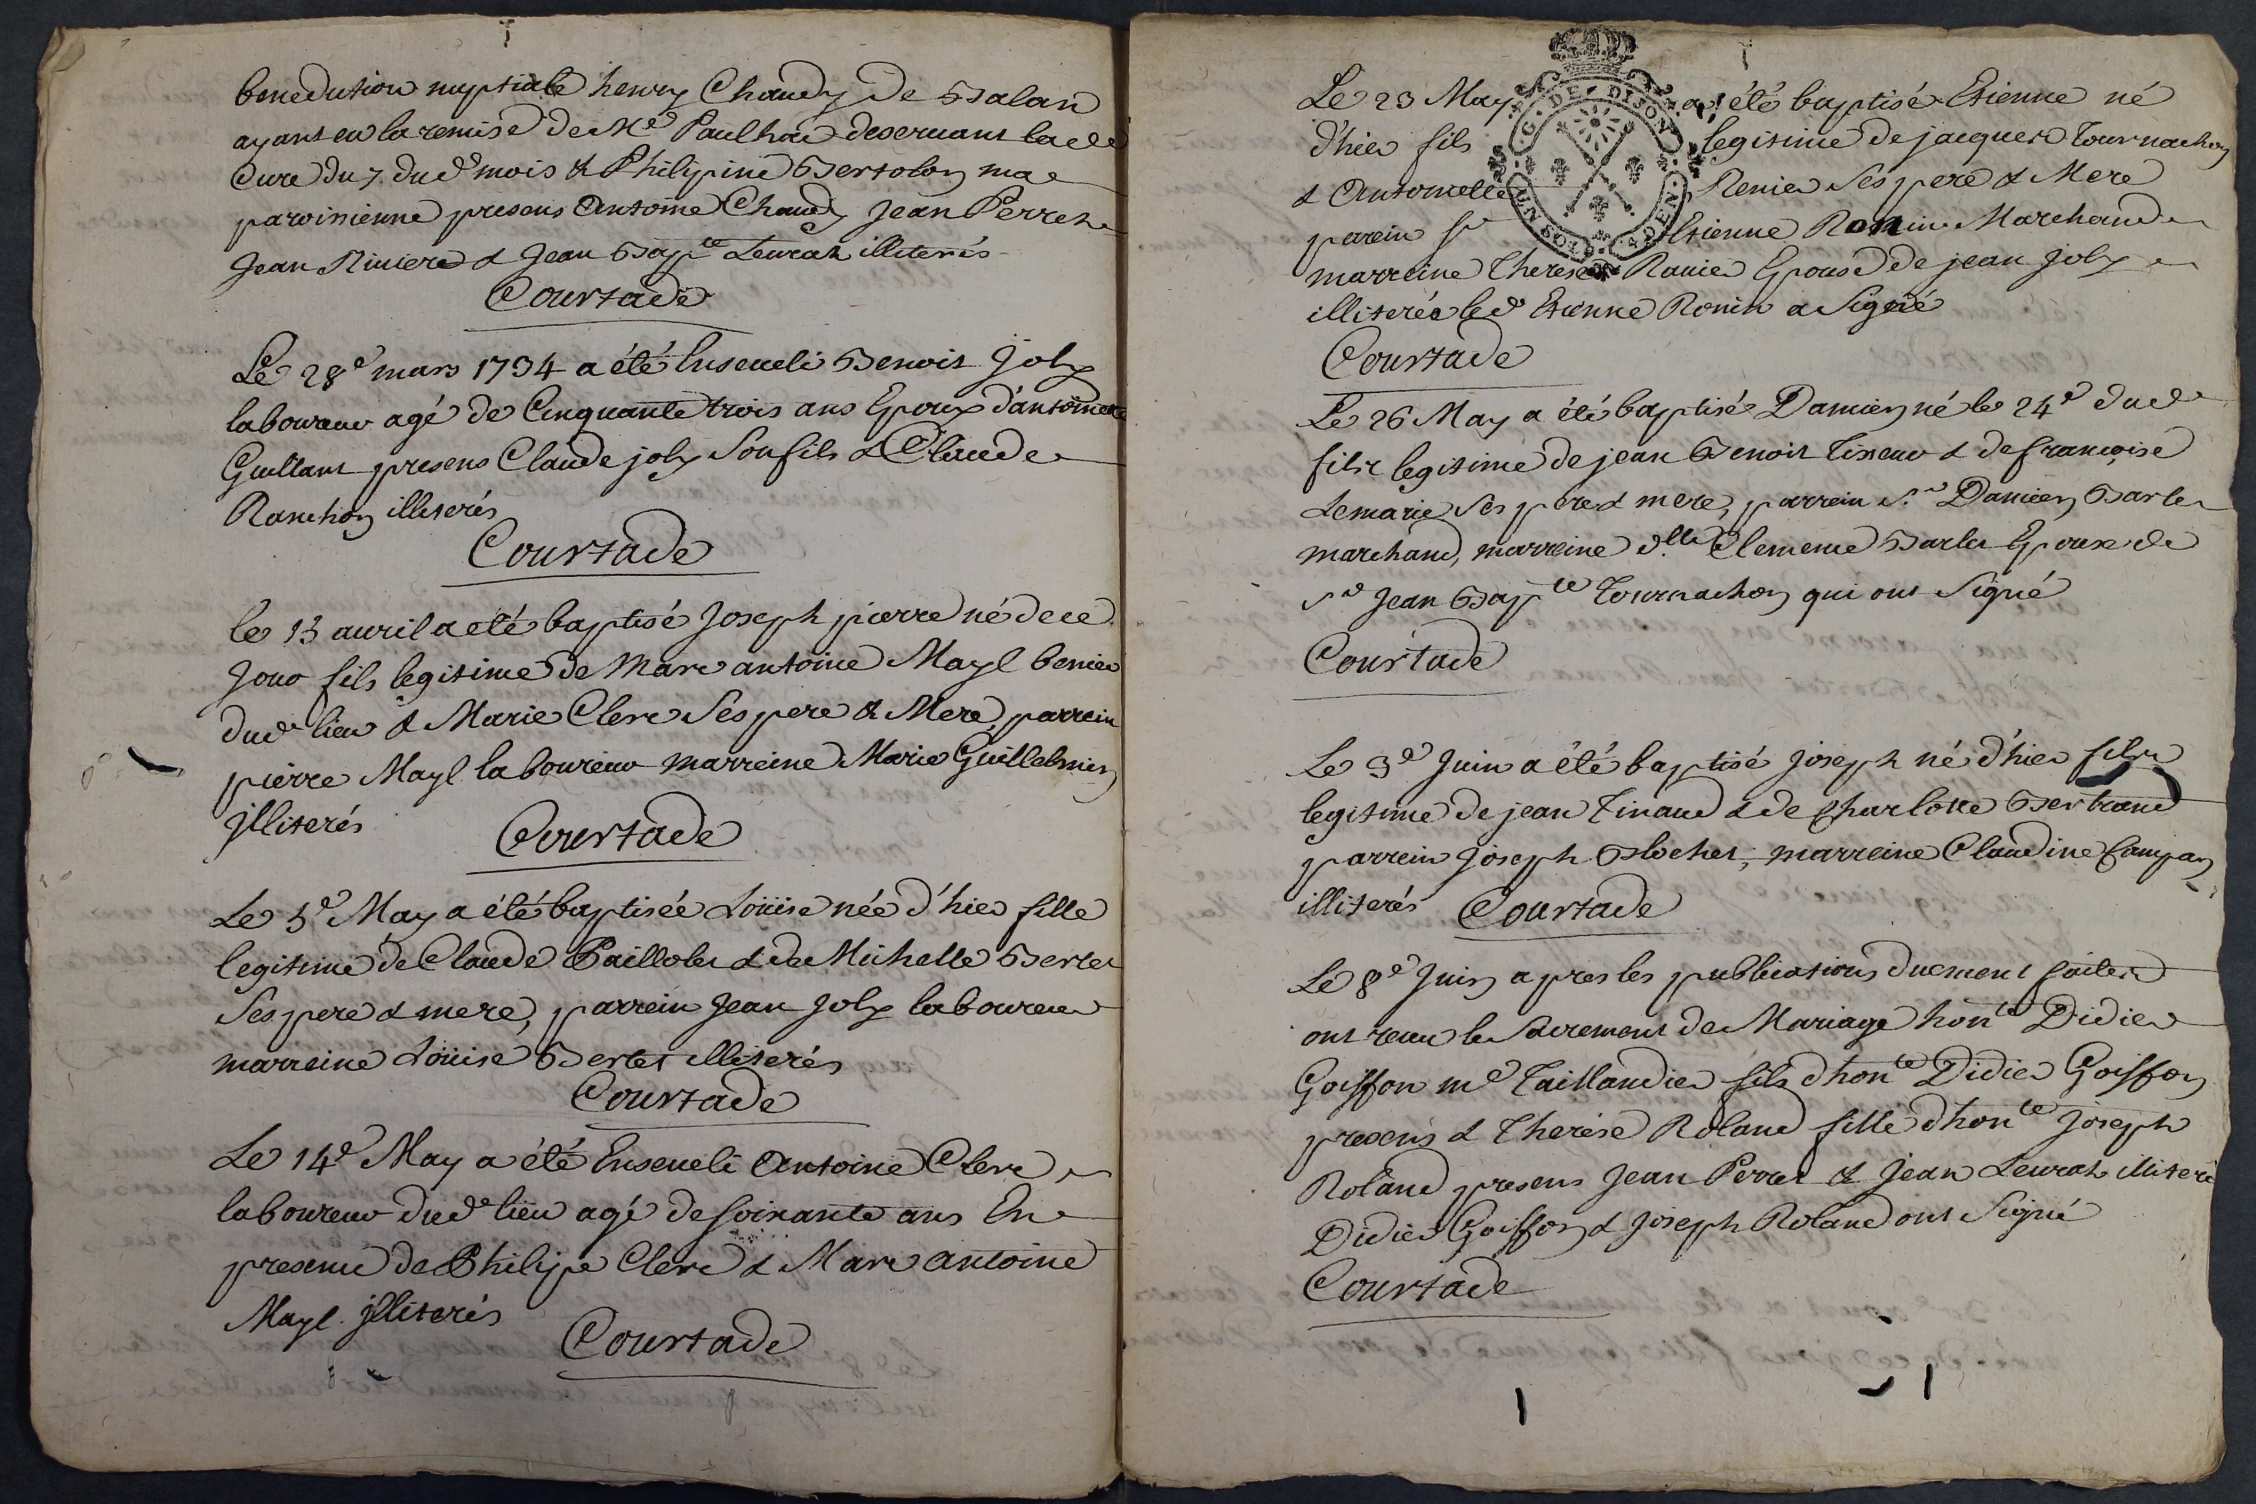 benediction nuptiale henry Chaudy de Balan
ayant eu la remise de Mr Paulhac deservant lade
Cure du 7. dud mois & Philipine Bertolon ma
paroissienne presens Antoine Chaudy Jean Perret
Jean Riviere & Jean Bapte Leurat illiterés
Courtade
Le 28e mars 1734 a été Enseveli Benoit Joly
laboureur agé de Cinquante trois ans Epoux d'antoinette
Guillant presens Claude joly Son fils & Claude
Ranchon illiterés
Courtade
le 13 avril a eté baptisé Joseph pierre né de ce
Jour fils legitime de Marc antoine Mayl
dud lieu & Marie Clerc Ses pere & Mere, parrein
pierre Mayl laboureur marreine Marie Guillelmin
jlliterés
Courtade
Le 5e May a été baptisée Loüise née d'hier fille
legitime de Claude Paillolet & de Michelle Bertet
Ses pere & mere, parrein Jean Joly laboureur
marreine Loüise Bertet illiterés
Courtade
Le 14e May a été Enseveli Antoine Clerc
laboureur dud lieu agé de soixante ans En
presence de Philipe Clerc & Marc antoine
Mayl. jlliterés
Courtade
G. DE DIJON
UN SOL
4 DEN.
Le 23 May a été baptisé Etienne né
d'hier fils legitime de jacques Tournachon
& Antoinette Renier Ses pere & Mere
parein Sr Etienne Ronin Marchand
marreine Therese Ranier Epouse de jean Joly
illiterés led Etienne Ronin a Signé
Courtade
Le 26 May a été baptisé Damien né le 24e dud
fils legitime de jean Benoit Tisseur & de francoise
Lemarie Ses pere & mere, parrein Sr Damien Barlet
marchand, marreine dlle Clemence Barlet Epouse de
Sr Jean Bapte Tournachon qui ont Signé
Courtade
Le 3e Juin a été baptisé Joseph né d'hier fils
legitime de jean Tinaud & de Charlotte Bertrand
parrein Joseph Blochet, marreine Claudine Campan
illiterés Courtade
Le 8e Juin apres les publications duement faites
ont receu le Sacrement de Mariage honte Didier
Goiffon me Taillandier fils d'honte Didier Goiffon
presens & Therese Roland fille d'honte Joseph
Roland presens Jean Perret & Jean Leurat illiteré
Didier Goiffon & Joseph Roland ont Signé
Courtade